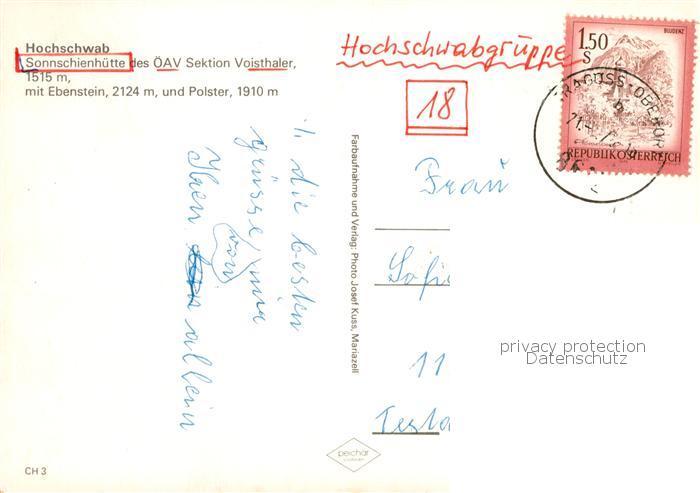 Hochschwab
Sonnschienhütte des ÖAV Sektion Voisthaler,
1515 m,
mit Ebenstein, 2124 m, und Polster, 1910 m
Hochschwabgruppe
18
1.50
S
BLUDENZ
REPUBLIK ÖSTERREICH
die besten
grüsse,
von
Ihnen allein
Farbaufnahme und Verlag: Photo Josef Kuss, Mariazell
Frau
Sofi
11
privacy protection
Datenschutz
peichär
CH 3